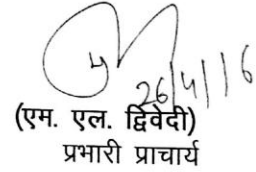 26/4/16
(एम. एल. द्विवेदी)
प्रभारी प्राचार्य